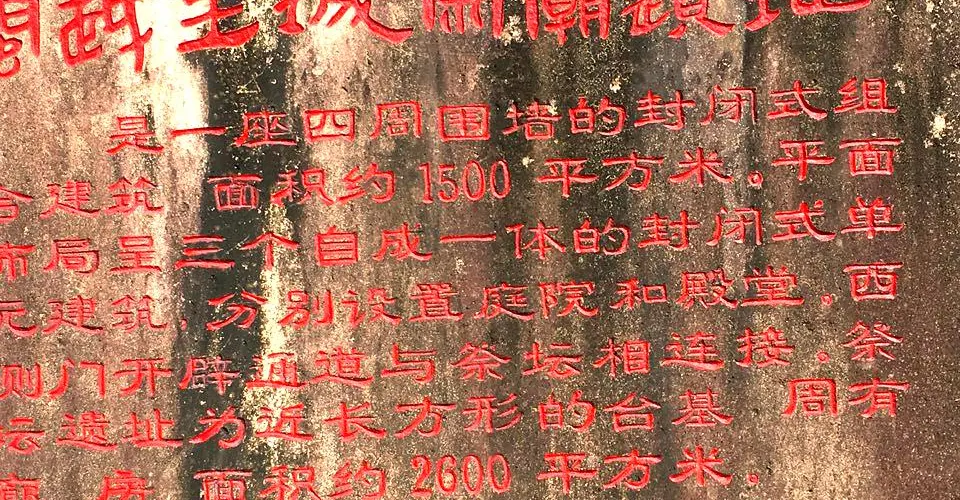 闽越王城宗庙遗址
是一座四周围墙的封闭式组
合建筑 面积约1500平方米。平面
布局呈三个自成一体的封闭式单
元建筑,分别设置庭院和殿堂。西
侧门开辟通道与祭坛相连接。祭
坛遗址为近长方形的台基 周有
廊 房 面积约2600平方米。